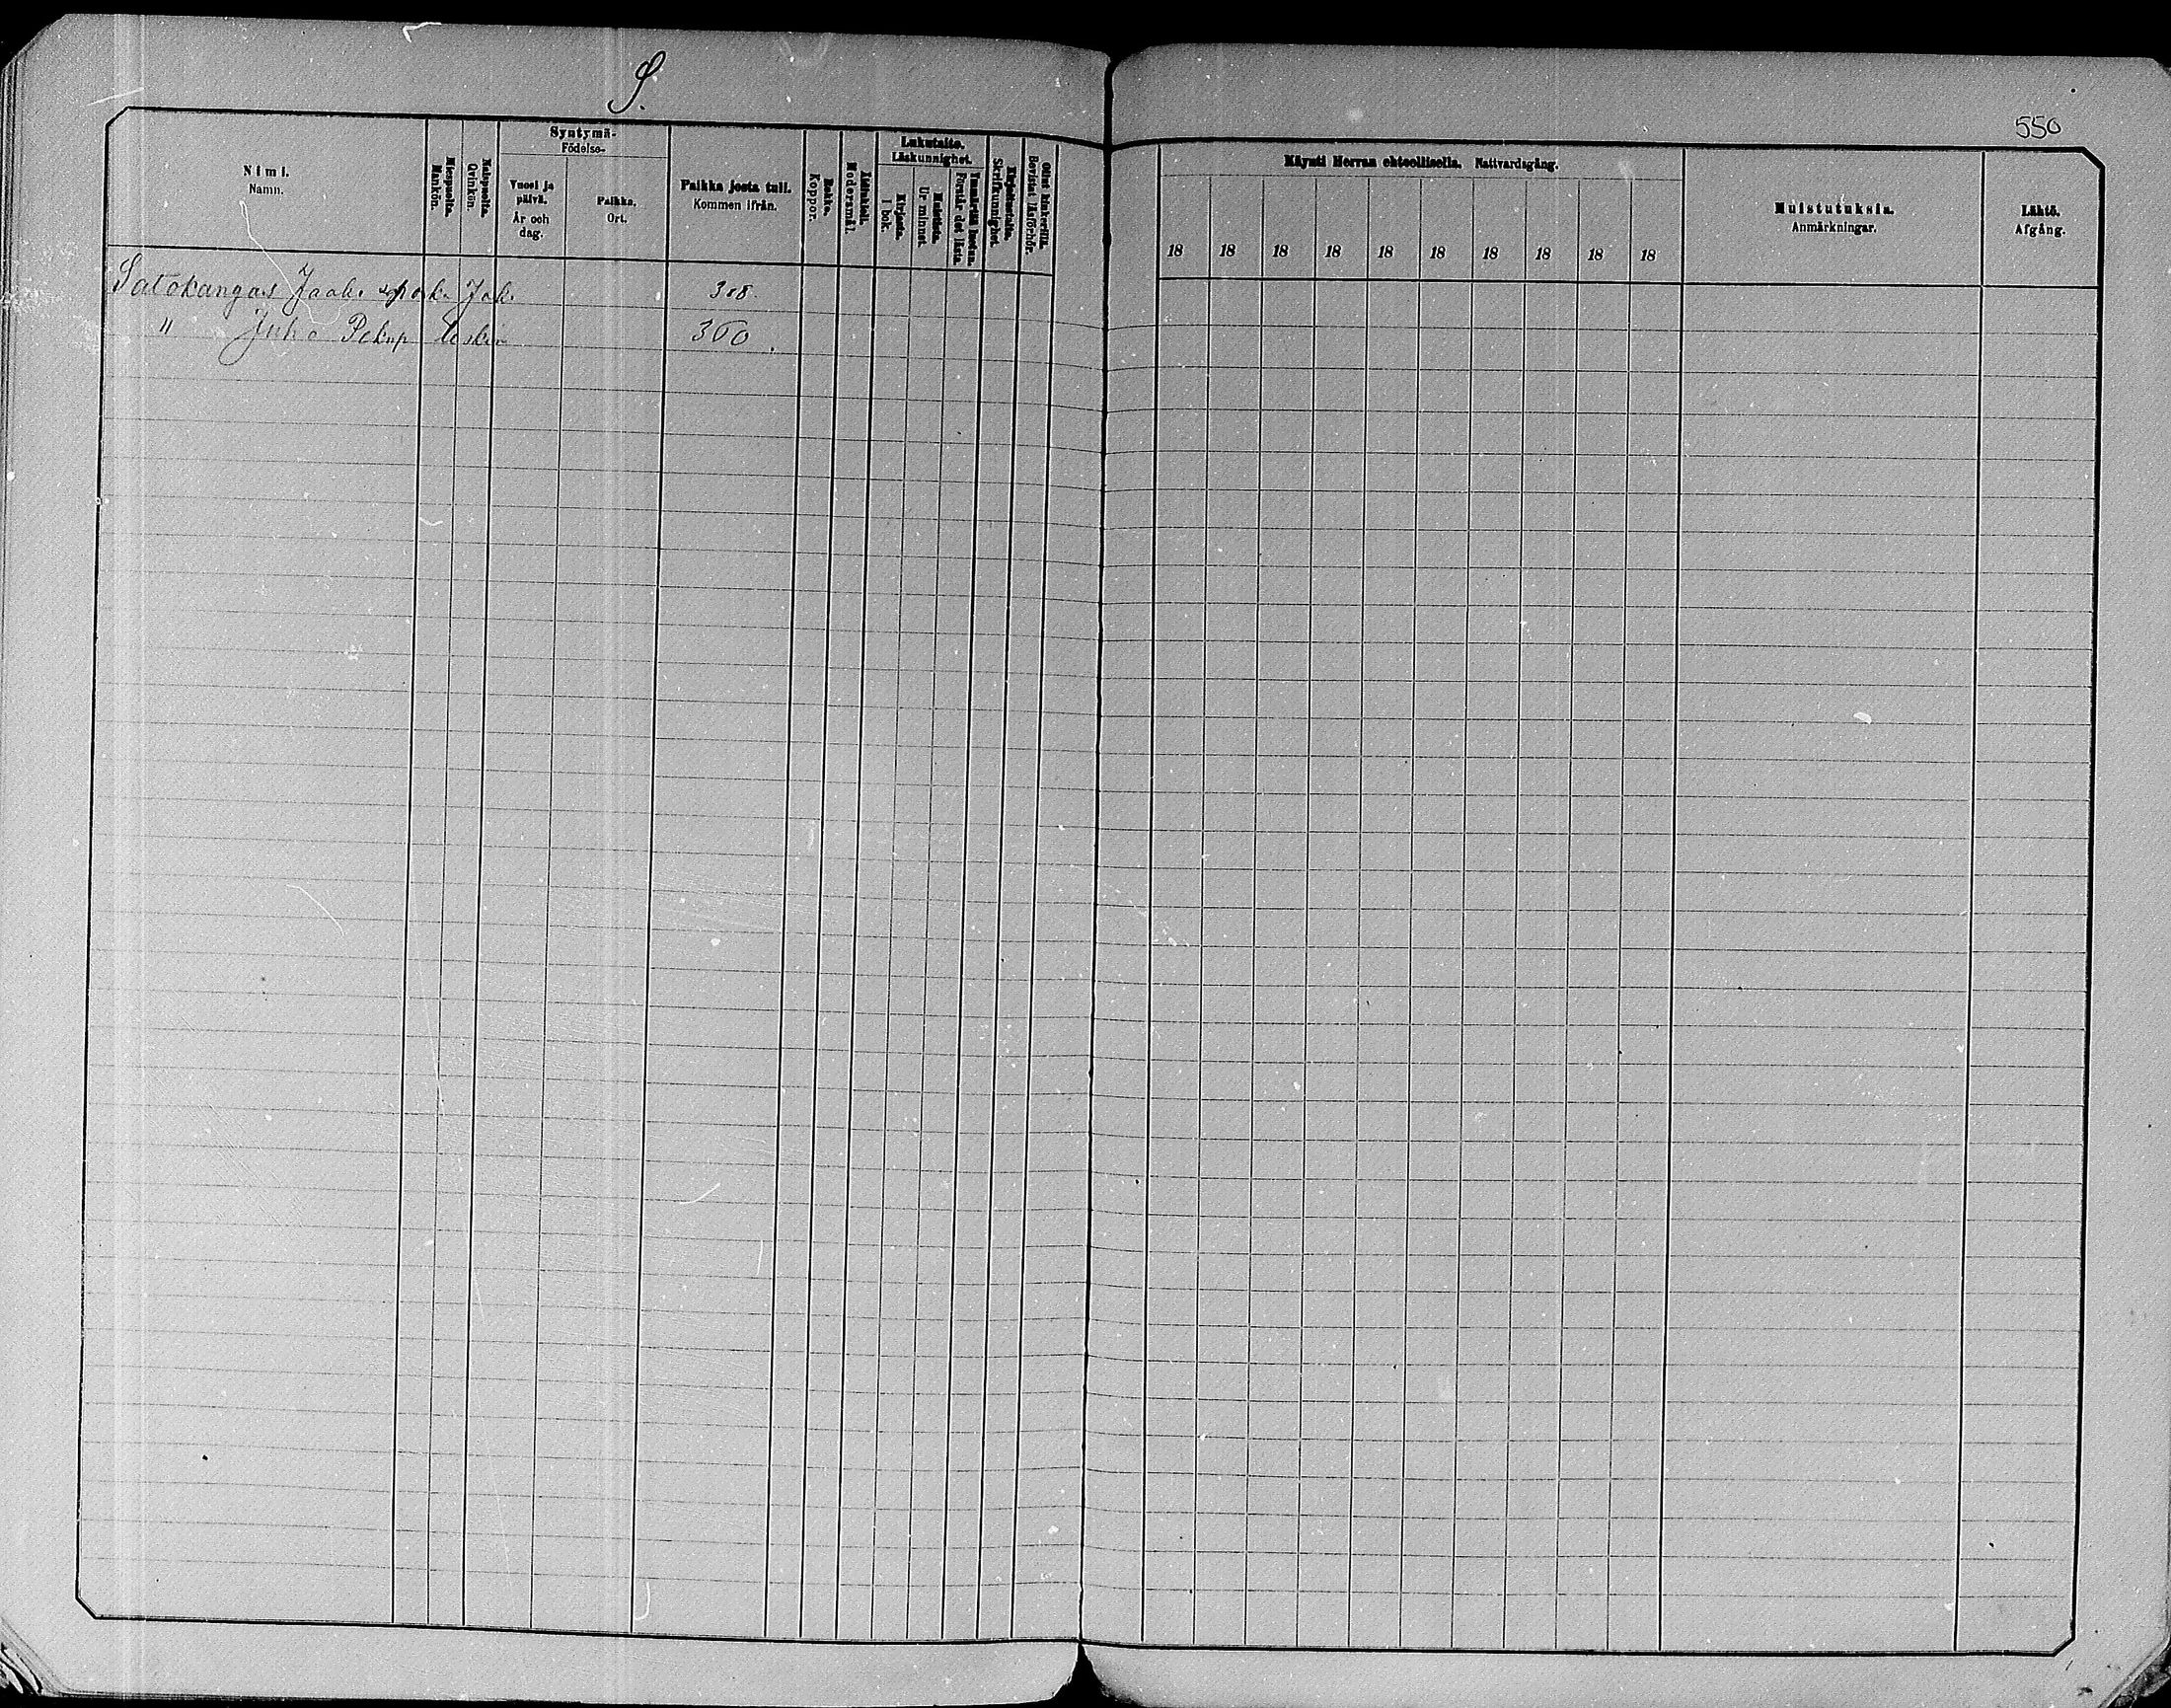 S.
550
Nimi.
Namn.
Miespuolia.
Mankön.
Naispuolia.
Qvinkön.
Syntymä-
Födelse-
Vuosi ja
päivä.
År och
dag.
Paikka.
Ort.
Paikka josta tuli.
Kommen ifrån.
Rokko.
Koppor.
Äidinkieli.
Modersmål.
Lukutaito.
Läskunnighet.
Kirjasta.
I bok.
Muistista.
Ur minnet.
Ymmärtää luetun.
Förstår det lästa.
Kirjoitustaito.
Skrifkunnighet.
Ollut kinkerillä.
Bevistat läsförhör.
Käynti Herran ehtoollisella. Nattvardsgång.
18 18 18 18 18 18 18 18 18 18
Muistutuksia.
Anmärkningar.
Lähtö.
Afgång.
Satokangas Jaak. Jak. 318.
" Juho Leskin 360